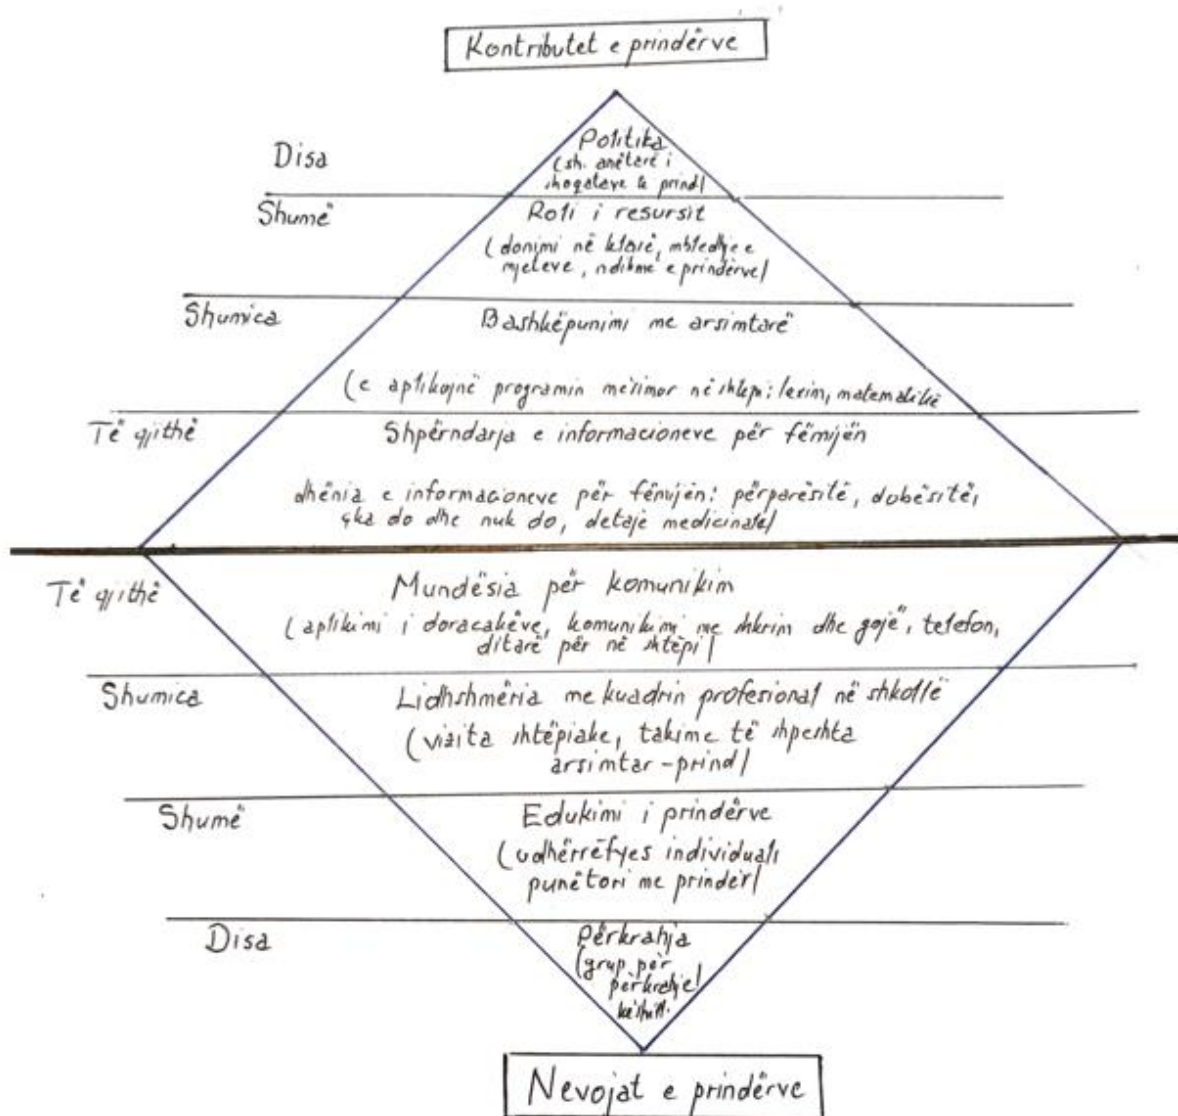 Kontributet e prindërve
Disa
Politika
(sh. anëtarë i
shoqatave të prind/
Shumë
Roli i resursit
(donimi në klasë, mbledhje e
mjeteve, ndihmë e prindërve/
Shumica
Bashkëpunimi me arsimtarë
(e aplikojnë programin mësimor në shtëpi: lexim, matematikë
Të gjithë
Shpërndarja e informacioneve për fëmijën
dhënia e informacioneve për fëmijën: përparësitë, dobësitë,
çka do dhe nuk do, detaje medicinale/
Të gjithë
Mundësia për komunikim
(aplikimi i doracakëve, komunikimi me shkrim dhe gojë, telefon,
ditarë për në shtëpi/
Shumica
Lidhshmëria me kuadrin profesional në shkollë
(vizita shtëpiake, takime të shpeshta
arsimtar-prind/
Shumë
Edukimi i prindërve
(udhërrëfyes individuali
punëtori me prindër/
Disa
Përkrahja
(grup për
përkrahje/
Nevojat e prindërve